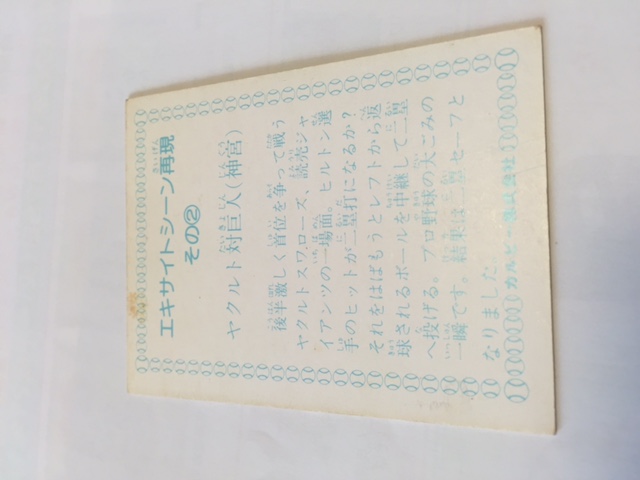 エキサイトシーン再現
その②
ヤクルト対巨人(神宮)
後半激しく首位を争って戦う
ヤクルトスワローズ、読売ジャ
イアンツの一場面。ヒルトン選
手のヒットが二塁打になるか?
それをはばもうとレフトから返
球されるボールを中継して二塁
へ投げる。プロ野球の大ごみの
一瞬です。結果は二塁セーフと
なりました。
カルビー株式会社